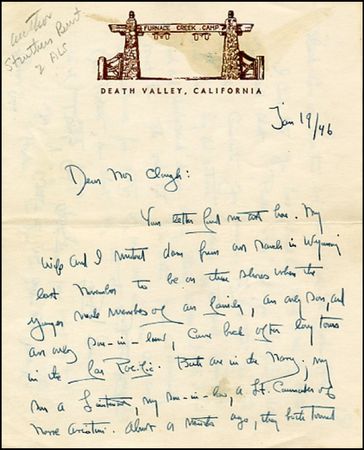 author
Struthers Burt
2 ALS
FURNACE CREEK CAMP
DEATH VALLEY, CALIFORNIA
Jan 19/46
Dear Mrs Clough:
Your letter finds me out here. My
wife and I motored down from our ranch in Wyoming
last November to be on these shores when the
younger male members of our family, an only son, and
an only son-in-law, came back after long tours
in the Far Pacific. Both are in the Navy, my
son a Lieutenant, my son-in-law, a Lt. Commander of
Naval Aviation. About a month ago, they both turned